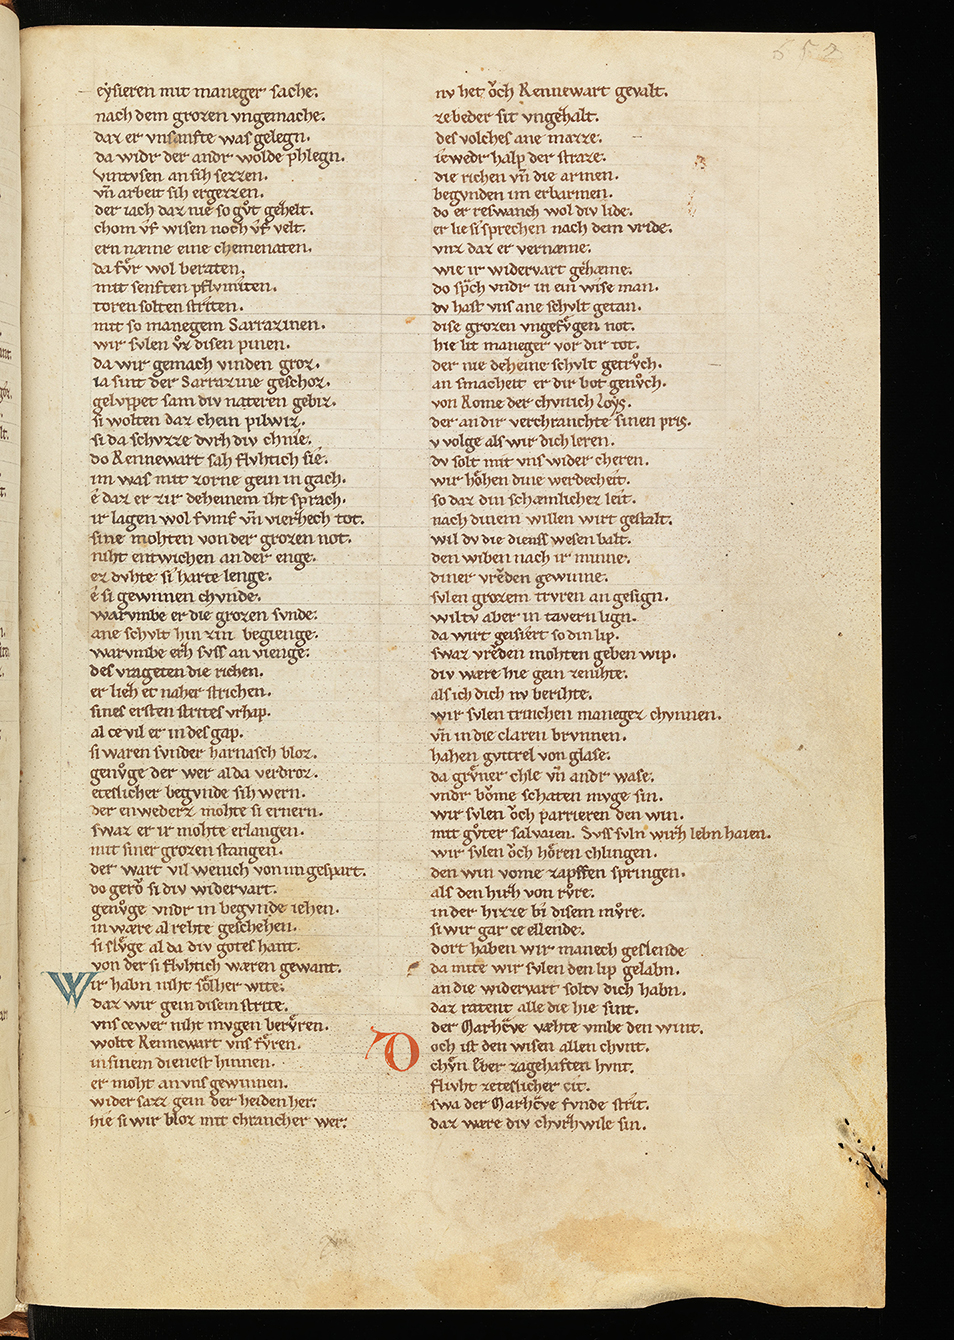 552
eysieren mit maneger sache.
nach dem grozen vngemache.
daz er vnsanfte was gelegn.
da widr der andr wolde phlegn.
vintvsen an sih sezzen.
vñ arbeit sih ergezzen.
der iach daz nie so gůt gehelt.
chom vf wisen noch vf velt.
ern næme eine chemenaten.
da fvr wol beraten.
mit senften pflvmiten.
toren solten striten.
mit so manegem Sarrazinen.
wir svlen vz disen pinen.
da wir gemach vinden groz.
ia sint der Sarrazine geschoz.
gelvppet sam div nateren gebiz.
si wolten daz chein pilwiz.
si da schvzze dvrh div chnie.
do Rennewart sah flvhtich sie.
im was mit zorne gein in gach.
é daz er zir deheinem iht sprach.
ir lagen wol fvmf vñ vierhech tot.
sine mohten von der grozen not.
niht entwichen an der enge.
ez dvhte si harte lenge.
é si gewinnen chvnde.
warvmbe er die grozen svnde.
ane schvlt hin zin begienge.
warvmbe erh svss an vienge.
des vrageten die richen.
er lieh et naher strichen.
sines ersten strites vrhap.
al ce vil er in des gap.
si waren svnder harnasch bloz.
genvge der wer alda verdroz.
eteslicher begvnde sih wern.
der enwederz mohte si ernern.
swaz er ir mohte erlangen.
mit siner grozen stangen.
der wart vil wenich von im gespart.
do gero si div widervart.
genvge vndr in begvnde iehen.
in wære al rehte geschehen.
si slvge al da div gotes hant.
von der si flvhtich wæren gewant.
Wir habn niht sölher wite.
daz wir gein disem strite.
vns ce wer niht mvgen bervren.
wolte Rennewart vns fvren.
in sinem dienest hinnen.
er moht an vns gewinnen.
wider sazz gein der heiden her.
hie si wir bloz mit chrancher wer.
nv het och Rennewart gevalt.
zebeder sit vngehalt.
des volches ane mazze.
iewedr halp der straze.
die richen vñ die armen.
begvnden im erbarmen.
do er reswanch wol div lide.
er lie si sprechen nach dem vride.
vnz daz er vernæme.
wie ir widervart gehæme.
do sprch vndr in ein wise man.
dv hast vns ane schvlt getan.
dise grozen vngefvgen not.
hie lit maneger vor dir tot.
der nie deheine schvlt getrvch.
an smacheit er dir bot genvch.
von Rome der chvnich Loys.
der an dir verchranchte sinen pris.
v volge als wir dich leren.
dv solt mit vns wider cheren.
wir höhen dine werdecheit.
so daz din schæmlichez leit.
nach dinem willen wirt gestalt.
wil dv die dienss wesen balt.
den wiben nach ir minne.
diner vreden gewinne.
svlen grozem trvren an gesign.
wiltv aber in tavern lign.
da wirt geisiert so din lip.
swaz vreden mohten geben wip.
div wære hie gein zenihte.
als ich dich nv berihte.
wir svlen trinchen maneger chvnnen.
vñ in die claren brvnnen.
hahen gvttrel von glase.
da grvner chle vñ andr wase.
vndr bome schaten mvge sin.
wir svlen och parrieren den win.
mit gvter salvaien. Svss svln wirh lebn haien.
wir svlen och hören chlingen.
den win vome zapffen springen.
als den hirh von rvre.
in der hizze bi disem mvre.
si wir gar ce ellende.
dort haben wir manech geslende
da mite wir svlen den lip gelabn.
an die widervart soltv dich habn.
daz ratent alle die hie sint.
der Marheve væhte vmbe den wint.
Doch ist den wisen allen chvnt.
chvn eber zagehaften hvnt.
flivht zeteslicher cit.
swa der Marheve fvnde strit.
daz wære div chvrhwile sin.